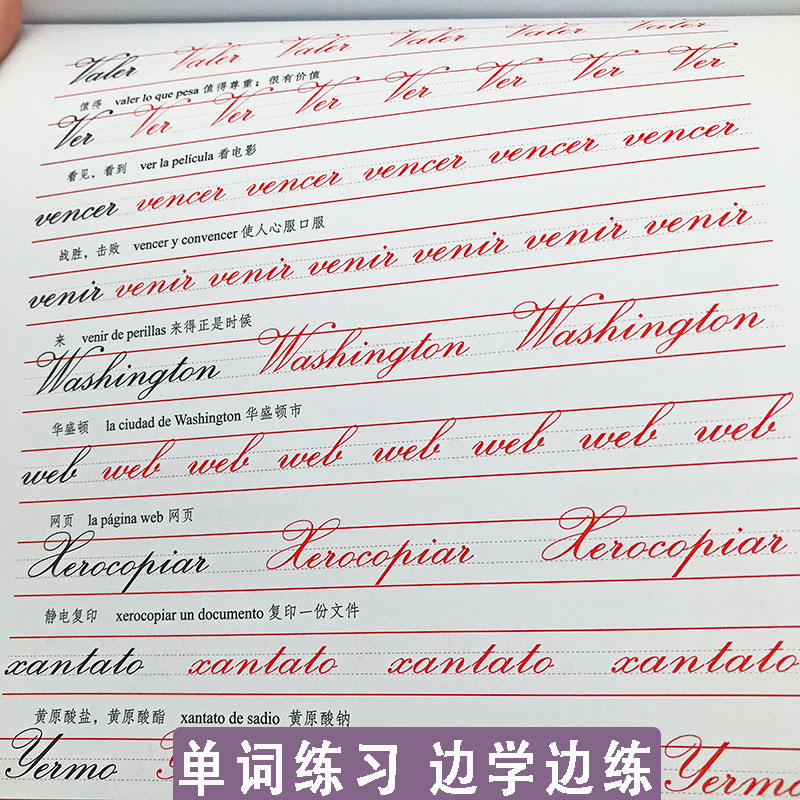 Valer Valer Valer Valer Valer Valer
值得 valer lo que pesa 值得尊重；很有价值
Ver Ver Ver Ver Ver Ver Ver Ver
看见，看到 ver la película 看电影
vencer vencer vencer vencer vencer vencer
战胜，击败 vencer y convencer 使人心服口服
venir venir venir venir venir venir venir
来 venir de perillas 来得正是时候
Washington Washington Washington
华盛顿 la ciudad de Washington 华盛顿市
web web web web web web web web
网页 la página web 网页
Xerocopiar Xerocopiar Xerocopiar
静电复印 xerocopiar un documento 复印一份文件
xantato xantato xantato xantato
黄原酸盐，黄原酸酯 xantato de sadio 黄原酸钠
Yermo Yermo
单词练习 边学边练